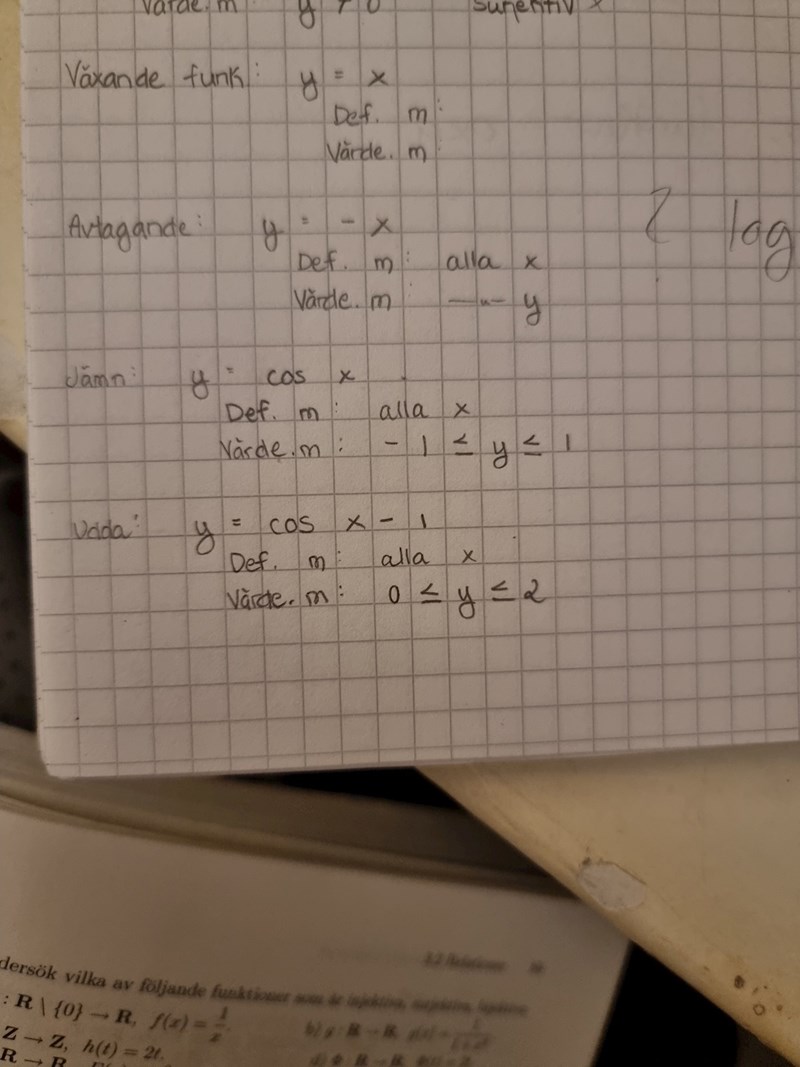 Värde. m y ≠ 0 surjektiv x
Växande funk: y = x
Def. m:
Värde. m:
Avtagande: y = - x
Def. m: alla x
Värde. m —"— y
? log
Jämn: y = cos x
Def. m: alla x
Värde. m: - 1 ≤ y ≤ 1
Udda: y = cos x - 1
Def. m: alla x
Värde. m: 0 ≤ y ≤ 2
dersök vilka av följande funktioner som är injektiva, surjektiva,
: R \ {0} → R, f(x) = 1/x.
Z → Z, h(t) = 2t.
R → R